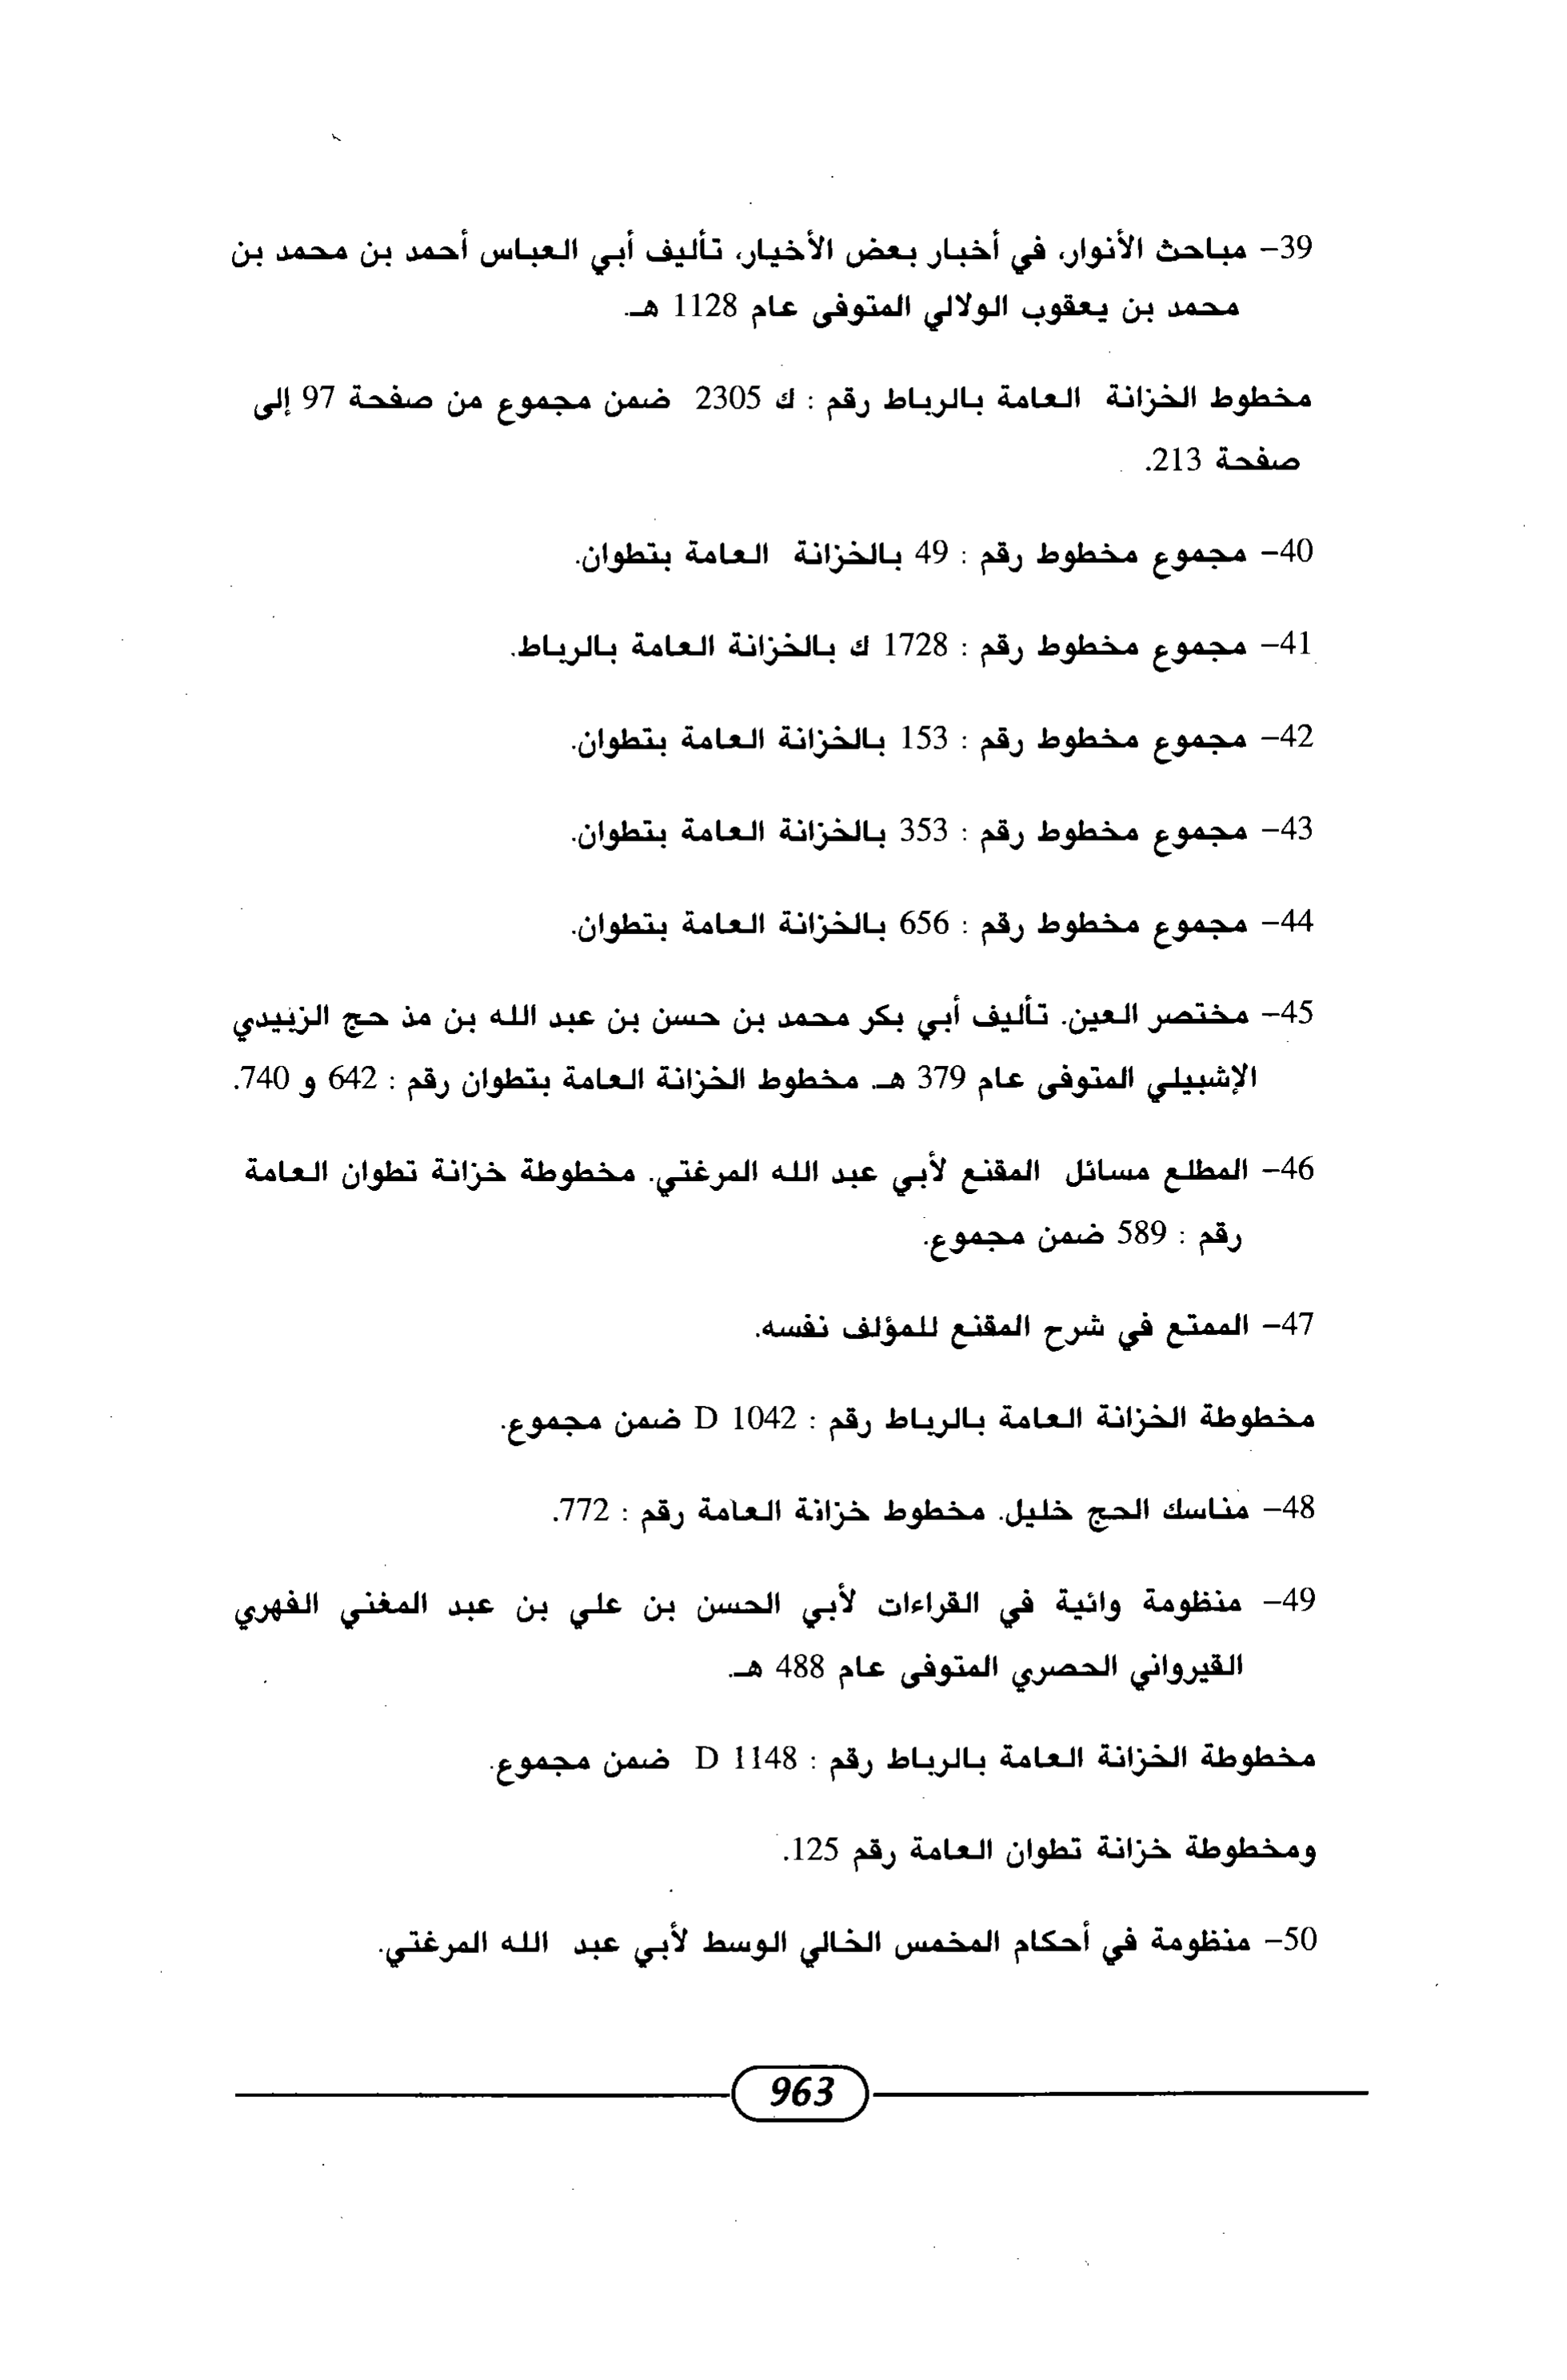 39– مباحث الأنوار، في أخبار بعض الأخيار، تأليف أبي العباس أحمد بن محمد بن
محمد بن يعقوب الولالي المتوفى عام 1128 هـ.
مخطوط الخزانة العامة بالرباط رقم : ك 2305 ضمن مجموع من صفحة 97 إلى
صفحة 213.
40– مجموع مخطوط رقم : 49 بالخزانة العامة بتطوان.
41– مجموع مخطوط رقم : 1728 ك بالخزانة العامة بالرباط.
42– مجموع مخطوط رقم : 153 بالخزانة العامة بتطوان.
43– مجموع مخطوط رقم : 353 بالخزانة العامة بتطوان.
44– مجموع مخطوط رقم : 656 بالخزانة العامة بتطوان.
45– مختصر العين. تأليف أبي بكر محمد بن حسن بن عبد الله بن مذ حج الزبيدي
الإشبيلي المتوفى عام 379 هـ. مخطوط الخزانة العامة بتطوان رقم : 642 و 740.
46– المطلع مسائل المقنع لأبي عبد الله المرغتي. مخطوطة خزانة تطوان العامة
رقم : 589 ضمن مجموع.
47– الممتع في شرح المقنع للمؤلف نفسه.
مخطوطة الخزانة العامة بالرباط رقم : 1042 D ضمن مجموع.
48– مناسك الحج خليل. مخطوط خزانة العامة رقم : 772.
49– منظومة وائية في القراءات لأبي الحسن بن علي بن عبد المغني الفهري
القيرواني الحصري المتوفى عام 488 هـ.
مخطوطة الخزانة العامة بالرباط رقم : 1148 D ضمن مجموع.
ومخطوطة خزانة تطوان العامة رقم 125.
50– منظومة في أحكام المخمس الخالي الوسط لأبي عبد الله المرغتي.
963